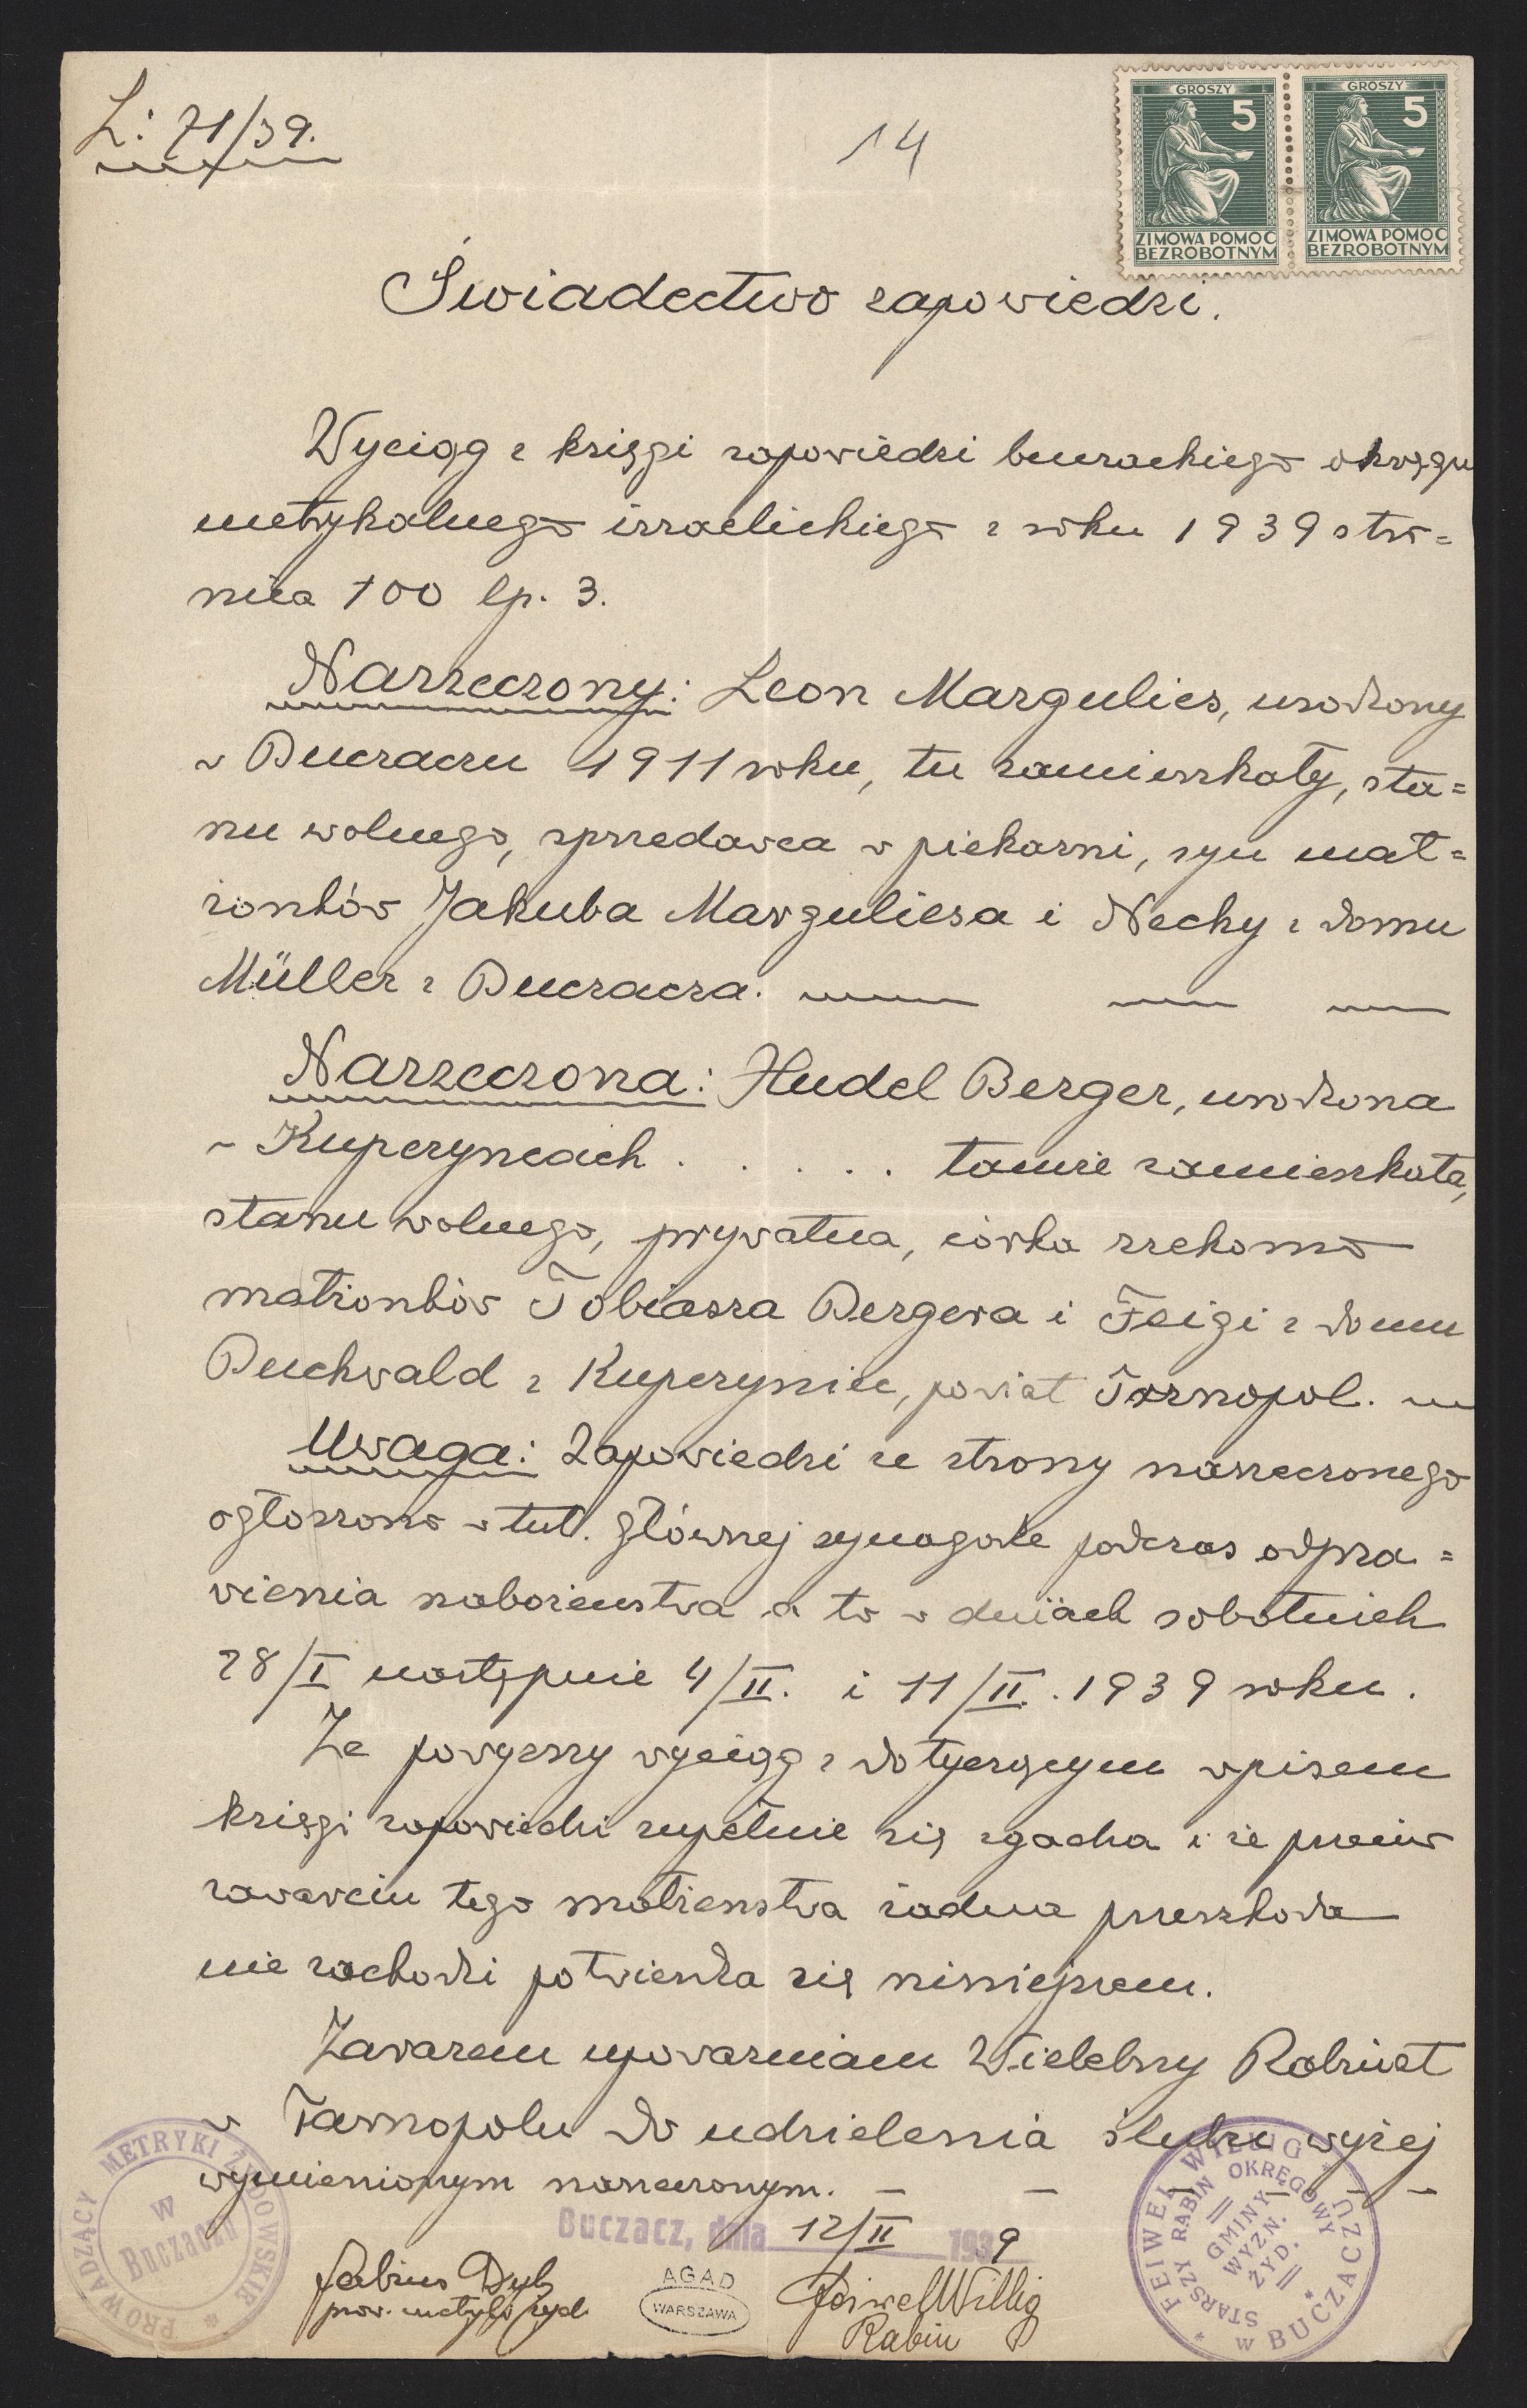 L: 71/39.
14
GROSZY 5
ZIMOWA POMOC
BEZROBOTNYM
GROSZY 5
ZIMOWA POMOC
BEZROBOTNYM
Świadectwo zapowiedzi.
Wyciąg z księgi zapowiedzi buczackiego okręgu
metrykalnego izraelickiego z roku 1939 stro=
nica 100 lp. 3.
Narzeczony: Leon Margulies, urodzony
w Buczaczu 1911 roku, tu zamieszkały, sta=
nu wolnego, sprzedawca w piekarni, syn mał=
żonków Jakuba Marguliesa i Nechy z domu
Müller z Buczacza.
Narzeczona: Hudel Berger, urodzona
w Kuperyncach . . . . . tamże zamieszkała,
stanu wolnego, prywatna, córka rzekomo
małżonków Tobiasza Bergera i Feigi z domu
Buchwald z Kuperyniec, powiat Tarnopol.
Uwaga: Zapowiedzi ze strony narzeczonego
ogłoszono w tut. głównej synagodze podczas odpra=
wienia nabożeństwa a to w dniach sobotnich
28/I następnie 4/II. i 11/II. 1939 roku.
Że powyższy wyciąg z dotyczącym wpisem
księgi zapowiedzi zupełnie się zgadza i że przeciw
zawarciu tego małżeństwa żadna przeszkoda
nie zachodzi potwierdza się niniejszem.
Zarazem upoważniam Wielebny Rabinat
w Tarnopolu do udzielenia ślubu wyżej
wymienionym narzeczonym. - - - - -
Buczacz, dnia 12/II 1939
Fabius Dyk
prow. metryki żyd.
AGAD
WARSZAWA
Feiwel Willig
Rabin
PROWADZĄCY METRYKI ŻYDOWSKIE
w
Buczaczu
FEIWEL WILLIG
STARSZY RABIN OKRĘGOWY
GMINY
WYZN.
ŻYD.
w BUCZACZU